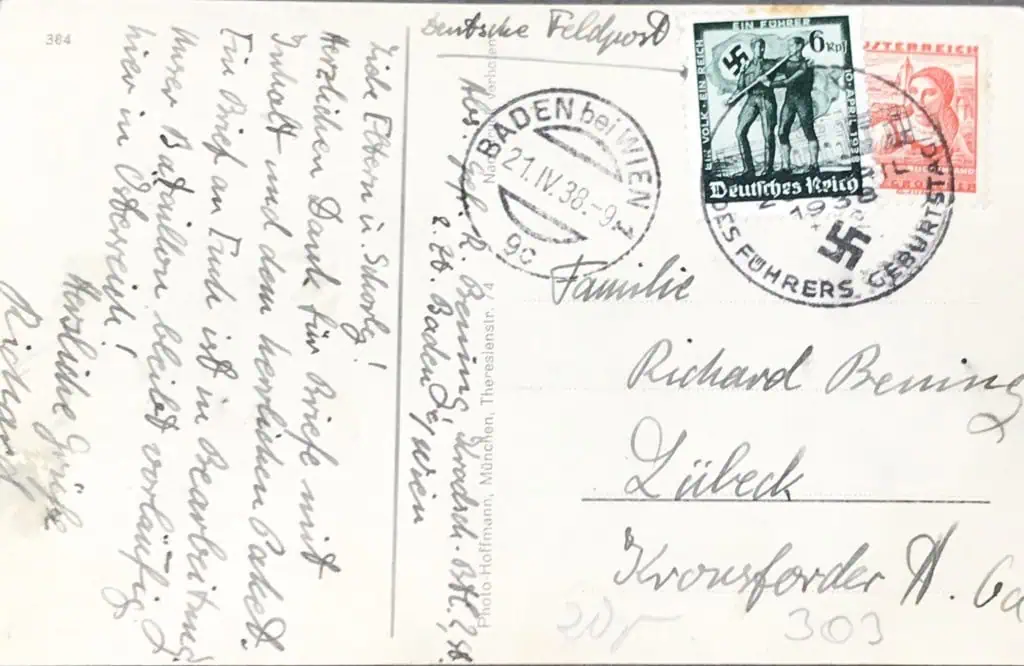 384
Deutsche Feldpost
Liebe Eltern u. Schorlg!
Herzlichen Dank für Briefe mit
Inhalt und dem herrlichen Paket.
Ein Brief an Euch ist in Bearbeitung.
Unser Bataillon bleibt vorläufig
hier in Österreich!
Herzliche Grüße
Richard
Abs. Gefr. R. Bening,
Baden b/ Wien
Photo-Hoffmann, München, Theresienstr. 74
BADEN bei WIEN
21.IV.38.-9
9c
EIN VOLK · EIN REICH
EIN FÜHRER
10. APRIL 1938
6 Rpf
Deutsches Reich
ÖSTERREICH
GROSCHEN
APRIL
1938
DES FÜHRERS GEBURTSTAG
Familie
Richard Bening
Lübeck
Kronsforder A.
20,-
303